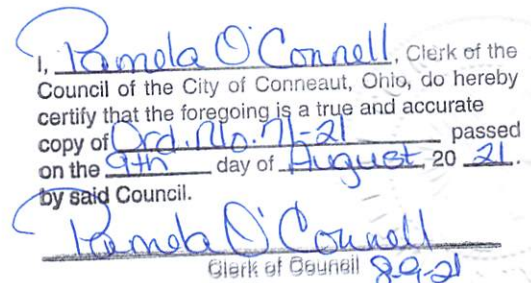 I, Pamela O'Connell, Clerk of the
Council of the City of Conneaut, Ohio, do hereby
certify that the foregoing is a true and accurate
copy of Ord. No. 71-21 passed
on the 9th day of August, 20 21.
by said Council.
Pamela O'Connell
Clerk of Council 8-9-21